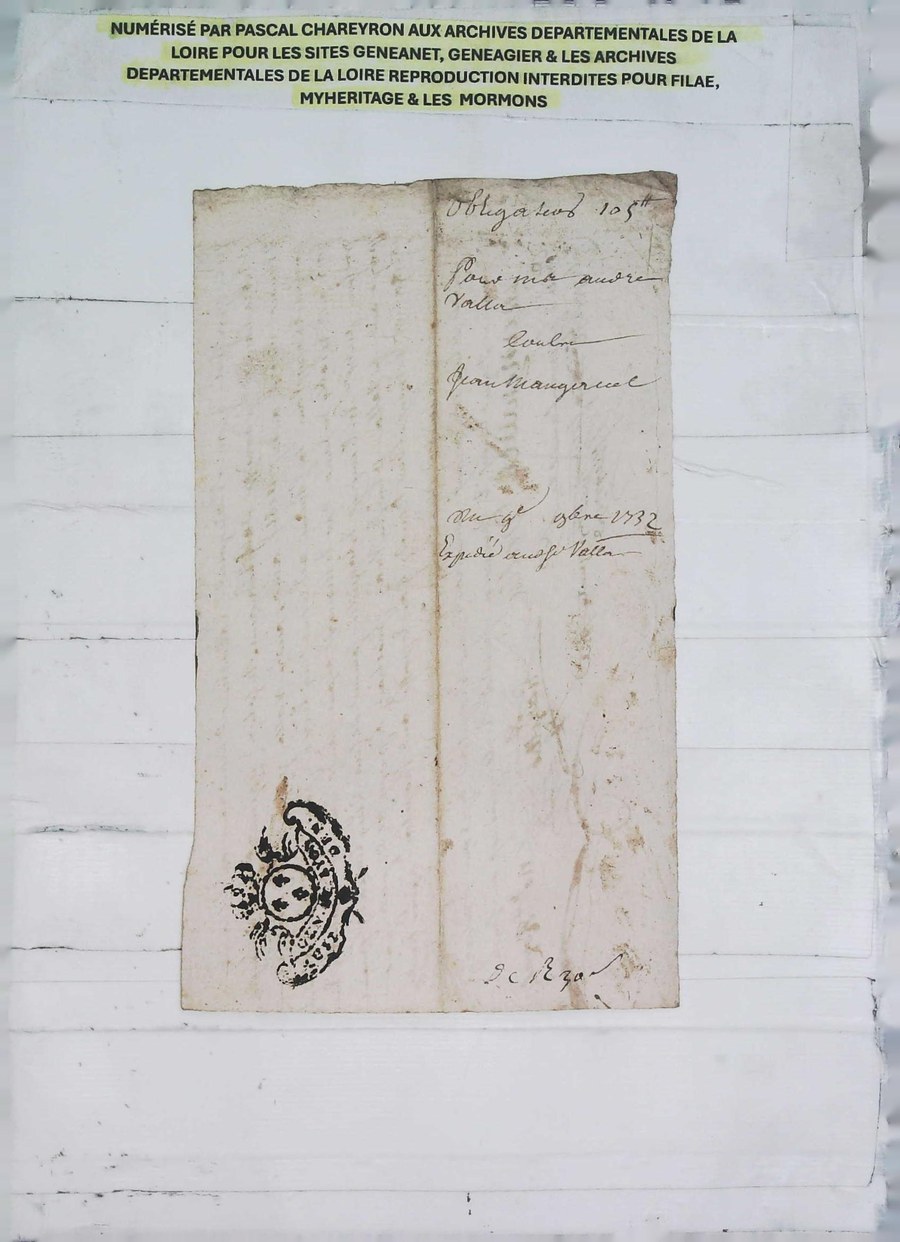 NUMÉRISÉ PAR PASCAL CHAREYRON AUX ARCHIVES DEPARTEMENTALES DE LA
LOIRE POUR LES SITES GENEANET, GENEAGIER & LES ARCHIVES
DEPARTEMENTALES DE LA LOIRE REPRODUCTION INTERDITES POUR FILAE,
MYHERITAGE & LES MORMONS
Obligations 105tt
Pour me andre
Valla
Contre
Jean
Du 9e 9bre 1732
Expédié Valla
GEN